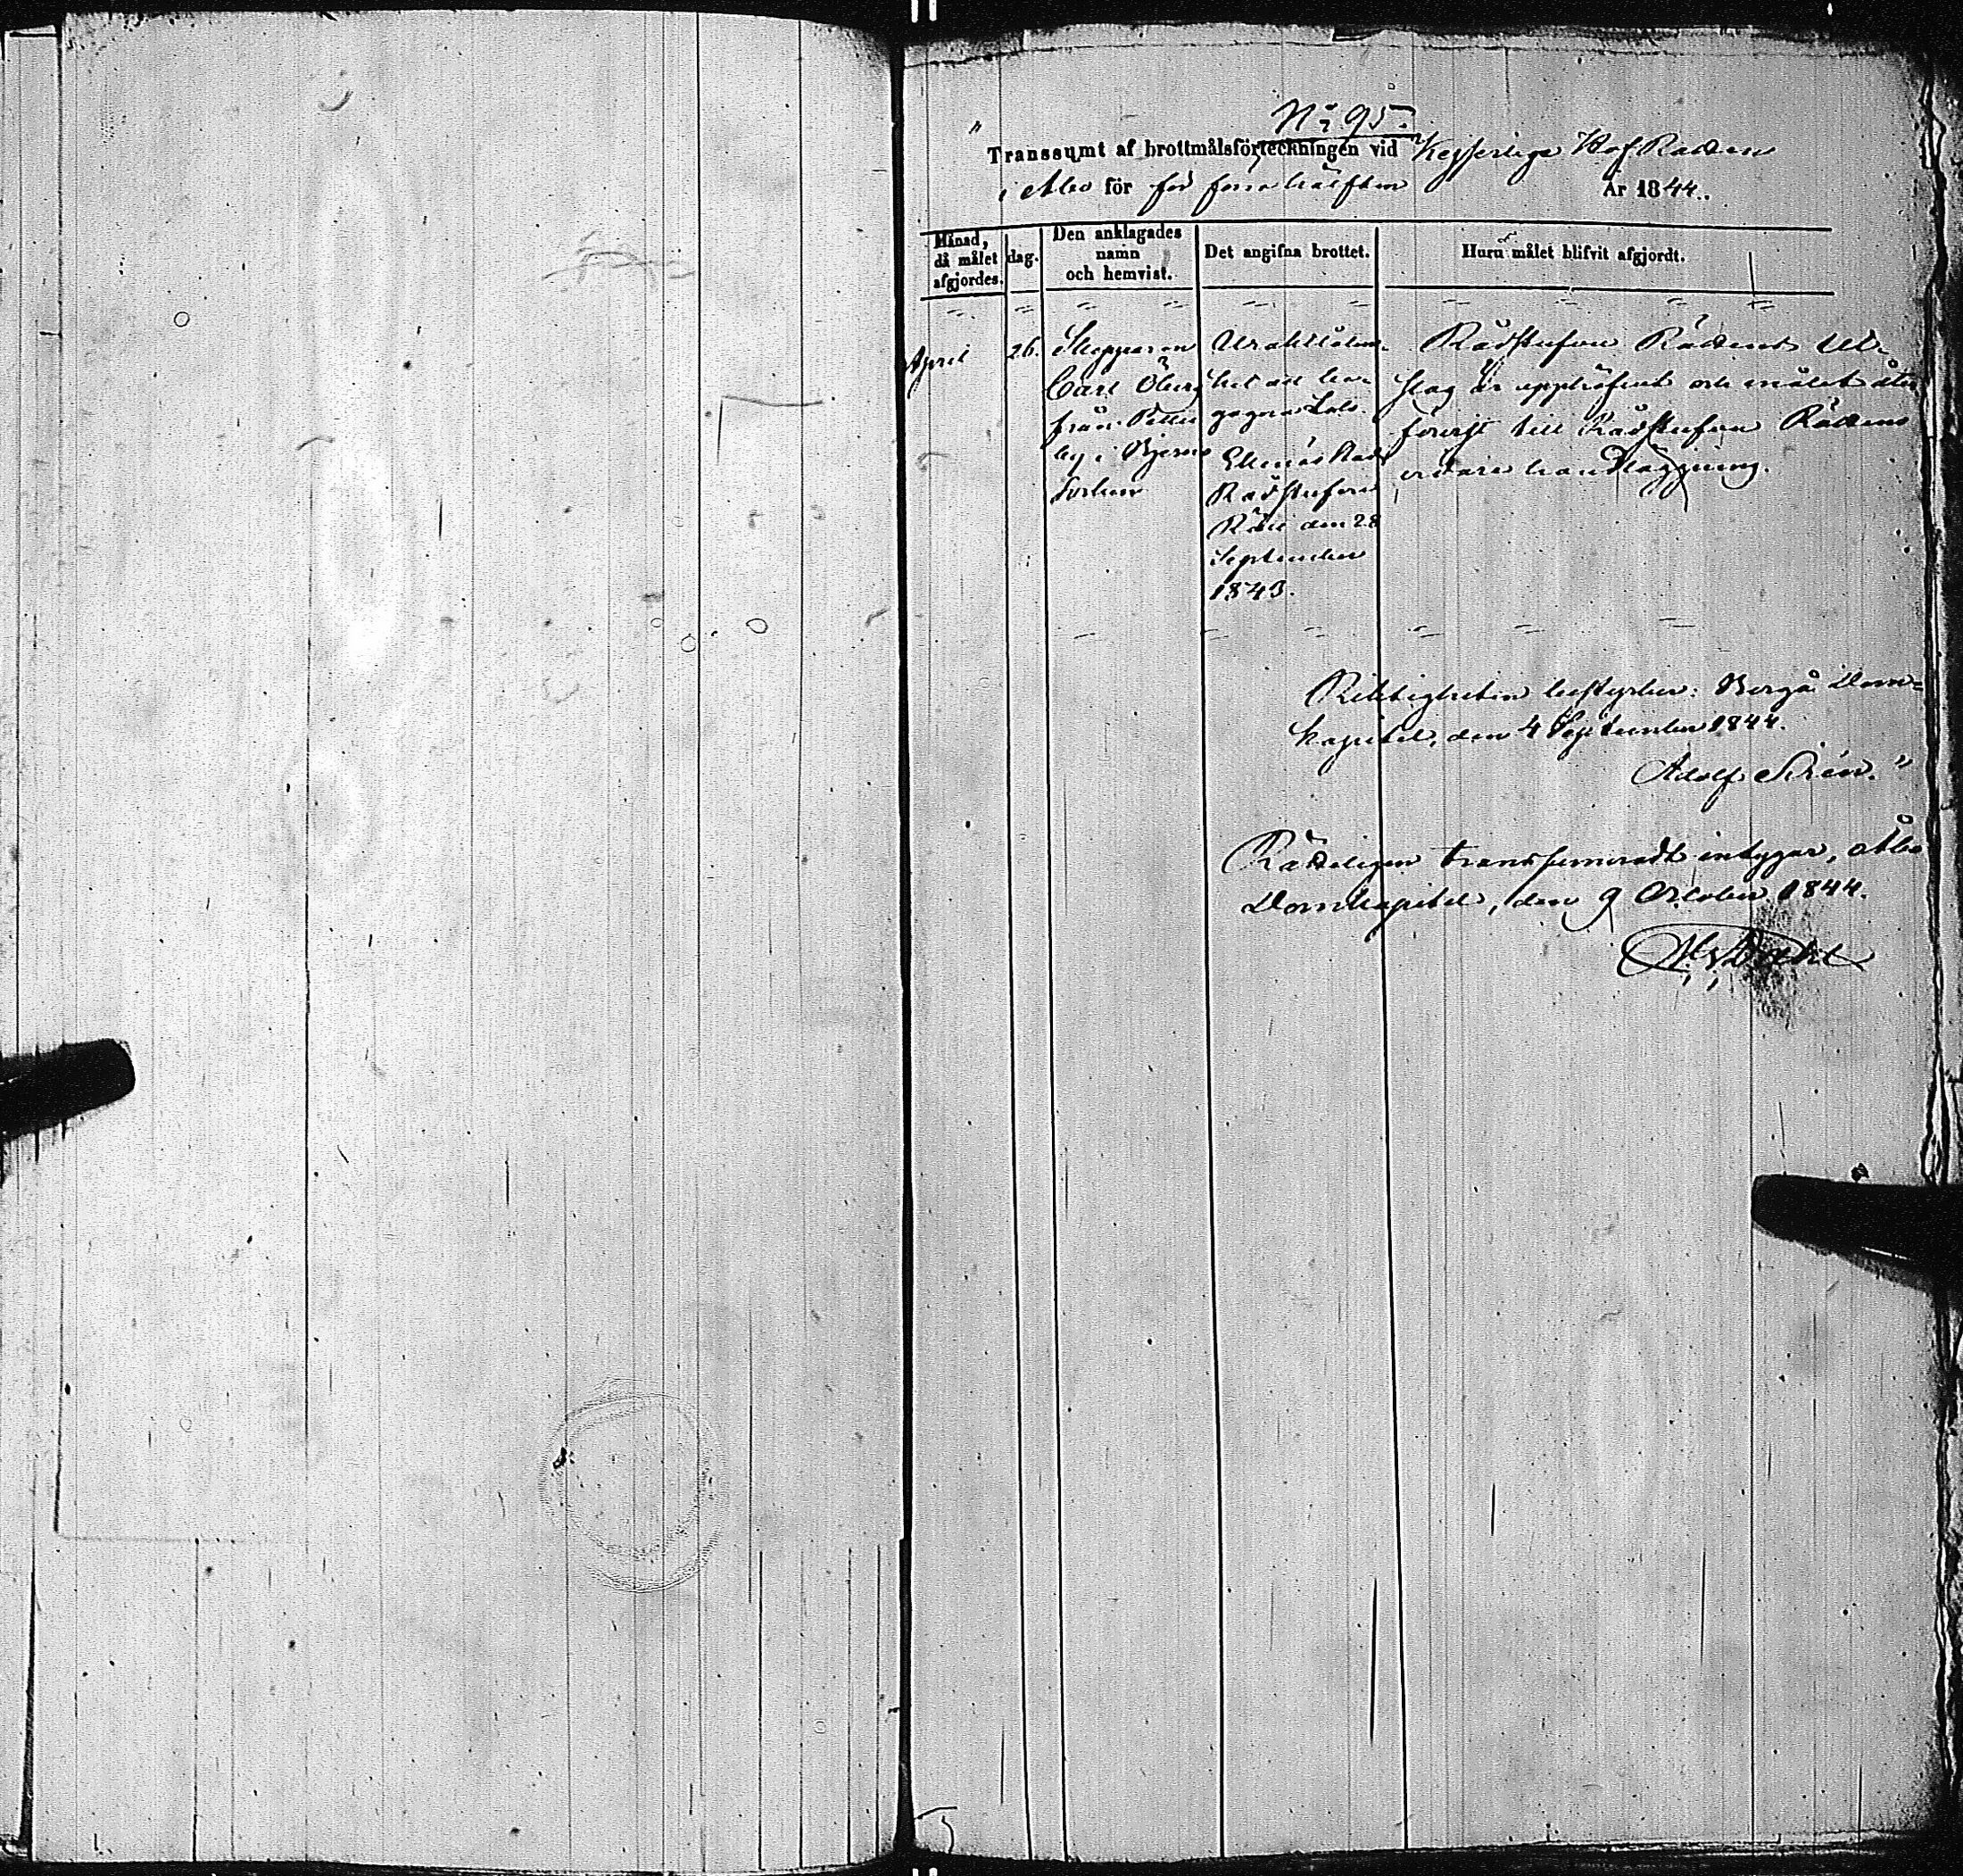 N:o 95.
" Transsumt af brottmålsförteckningen vid Kejserliga HofRätten
i Åbo för för förra hälften År 1844.
Månad, då målet afgjordes.
dag.
Den anklagades namn och hemvist.
Det angifna brottet.
Huru målet blifvit afgjordt.
April
26.
Skepparen
Carl Öberg
från Petter
by i Bjerno
Socken
Uraktlåten-
het att be-
gagna Lots.
Ekenäs Stads
Rådstufvu
Rätt den 28
September
1843.
Rådstufvu Rättens Ut-
slag är upphäfvet och målet åter
förvist till Rådstufvu Rättens
vidare handläggning.
Riktigheten bestyrker: Borgå Dom-
kapitel, den 4 September 1844.
Adolf Sirén."
Rätteligen transsumeradt intygar, Åbo
Domkapitel, den 9 October 1844.